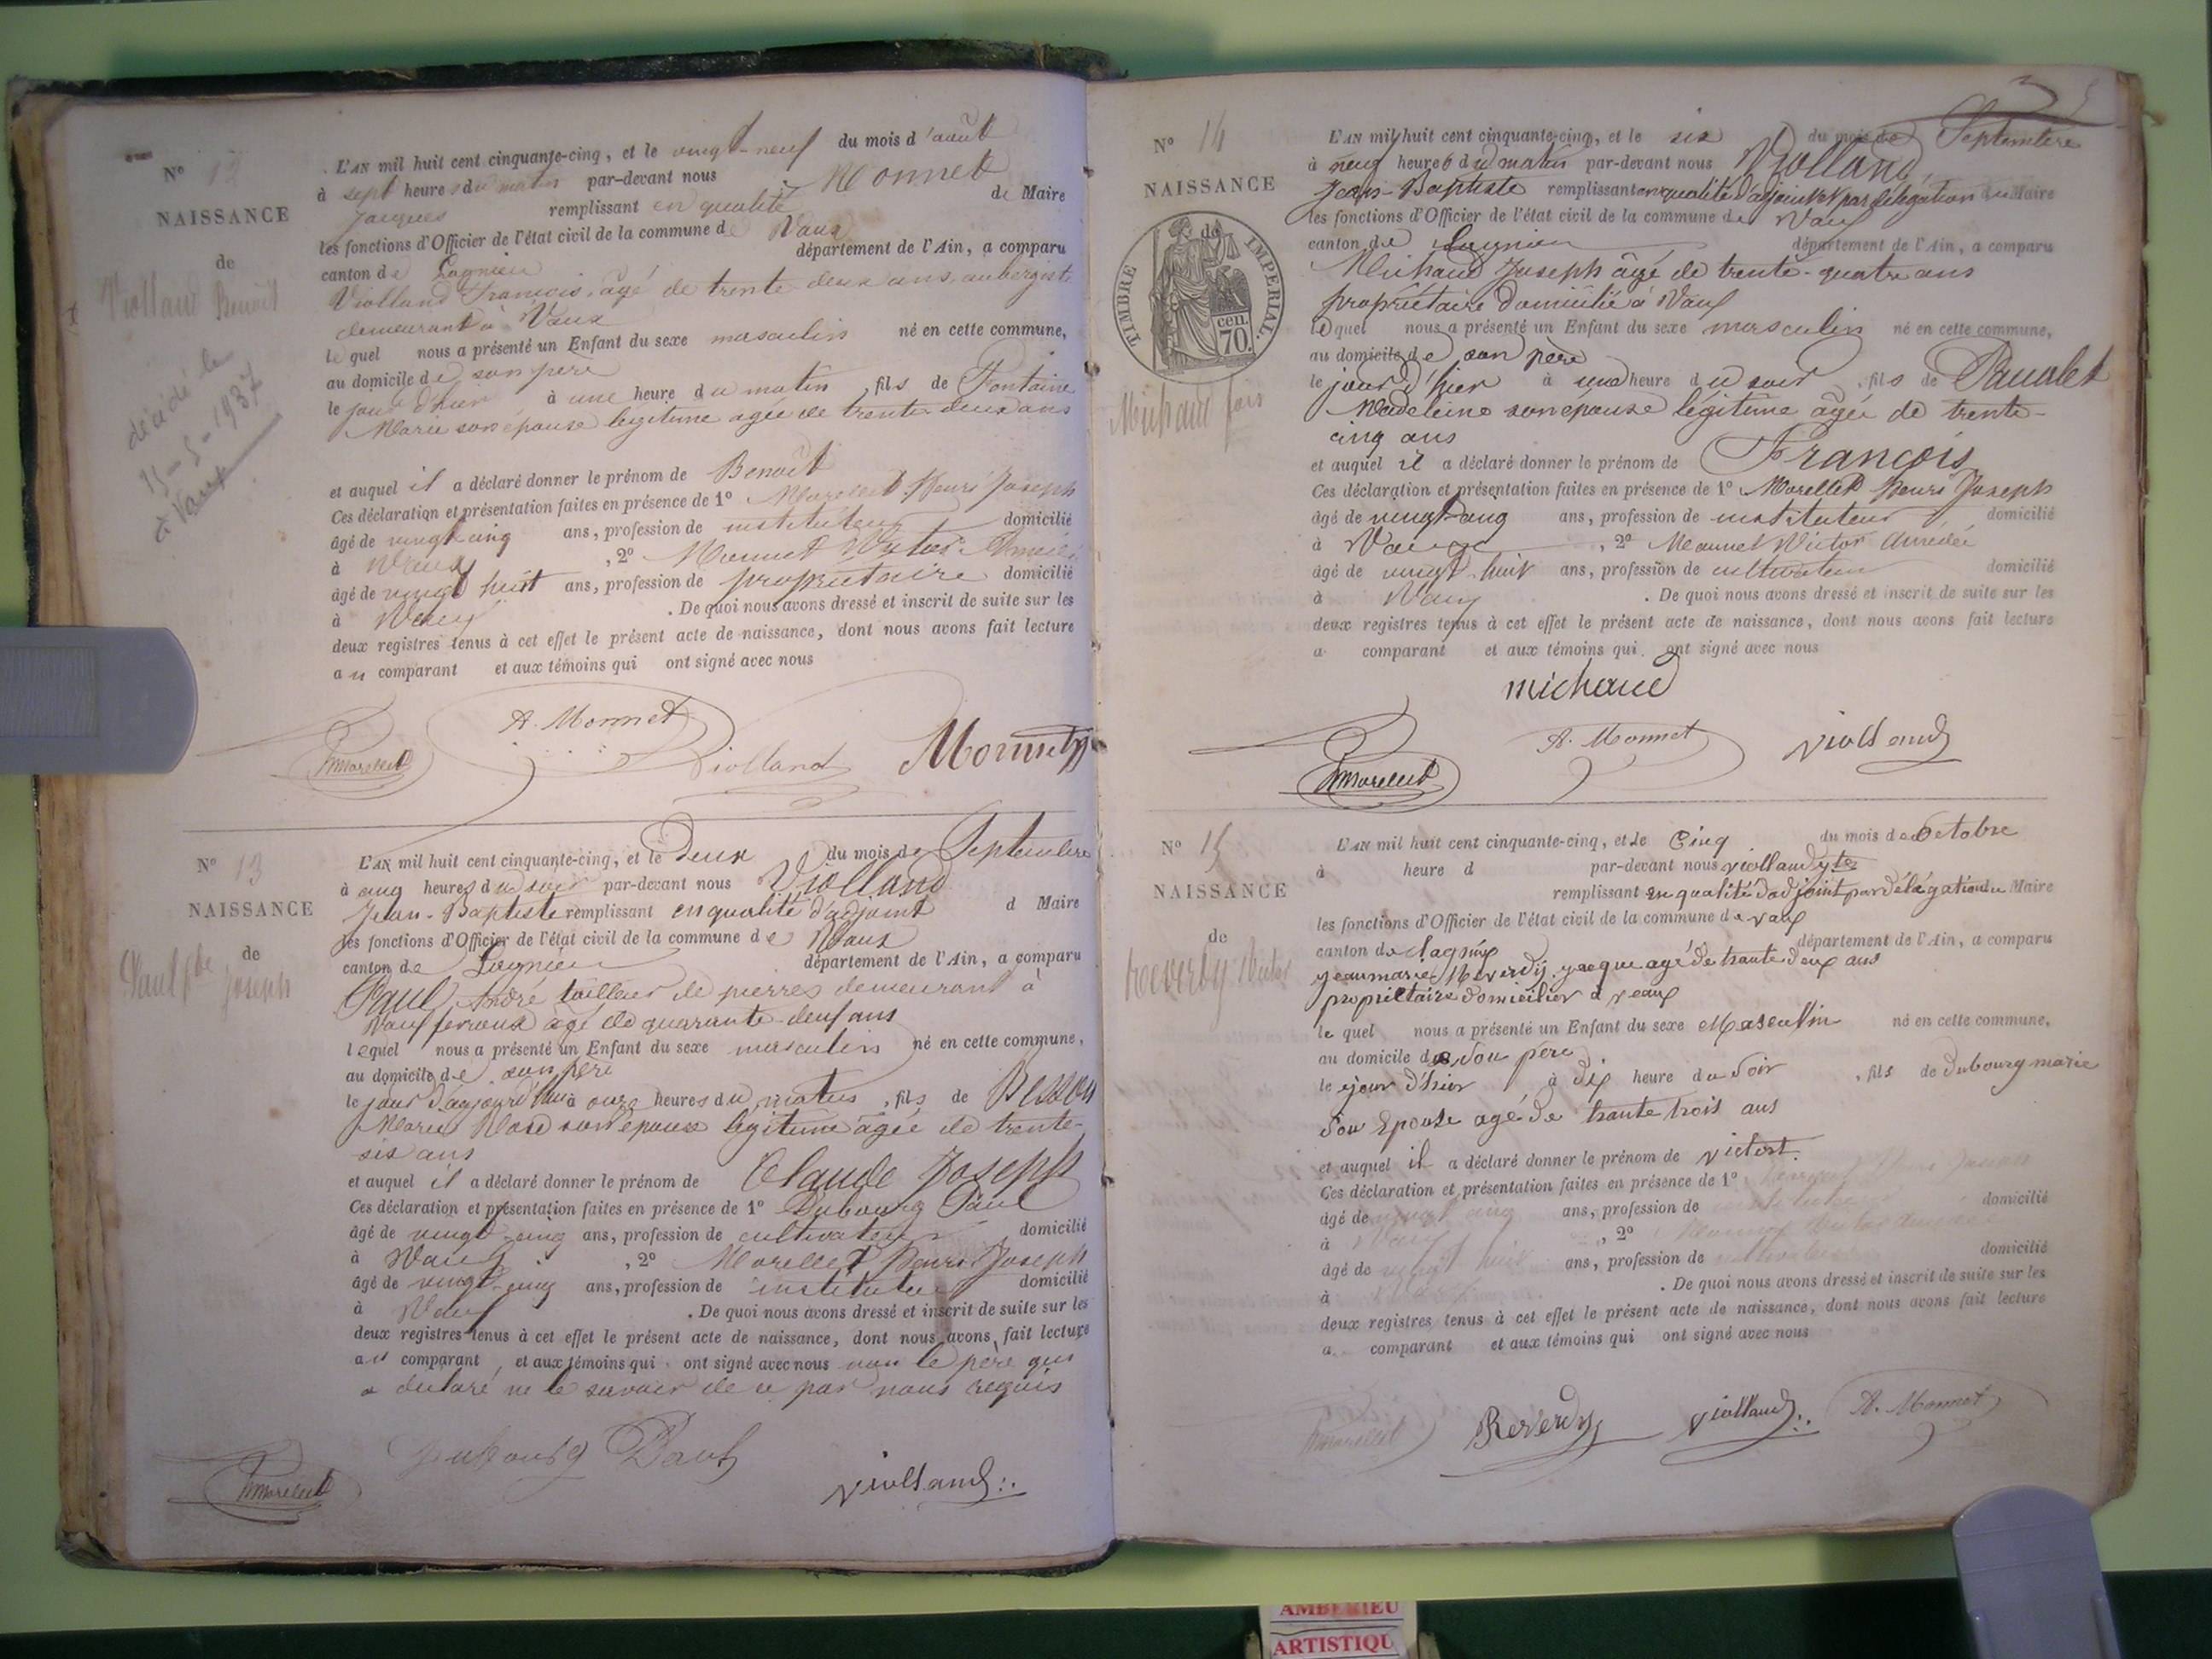 Nº 12
NAISSANCE
de
Violland Benoît
décédé le
15-5-1937
à Vaux
L'AN mil huit cent cinquante-cinq, et le vingt-neuf du mois d'août
à sept heures du matin par-devant nous Monnet
Jacques remplissant en qualité de Maire
les fonctions d'Officier de l'état civil de la commune de Vaux
canton de Lagnieu département de l'Ain, a comparu
Violland François, agé de trente deux ans, aubergiste
demeurant à Vaux
lequel nous a présenté un Enfant du sexe masculin né en cette commune,
au domicile de son père
le jour d'hier à une heure du matin, fils de Fontaine
Marie son épouse légitime agée de trente deux ans
et auquel il a déclaré donner le prénom de Benoît
Ces déclaration et présentation faites en présence de 1º Morellet Henri Joseph
âgé de vingt cinq ans, profession de instituteur domicilié
à Vaux, 2º Monnet Victor Amédé
âgé de vingt huit ans, profession de propriétaire domicilié
à Vaux. De quoi nous avons dressé et inscrit de suite sur les
deux registres tenus à cet effet le présent acte de naissance, dont nous avons fait lecture
au comparant et aux témoins qui ont signé avec nous
A. Monnet
Hmorellet Violland Monnet
Nº 13
NAISSANCE
de
Paul Cde Joseph
L'AN mil huit cent cinquante-cinq, et le deux du mois de Septembre
à cinq heures du soir par-devant nous Violland
Jean-Baptiste remplissant en qualité d'adjoint d Maire
les fonctions d'Officier de l'état civil de la commune de Vaux
canton de Lagnieu département de l'Ain, a comparu
Paul André tailleur de pierres demeurant à
Vaux fevroux agé de quarante-deux ans
lequel nous a présenté un Enfant du sexe masculin né en cette commune,
au domicile de son père
le jour d'aujourd'hui à onze heures du matin, fils de Besson
Marie Rose son épouse légitime âgée de trente-
six ans
et auquel il a déclaré donner le prénom de Claude Joseph
Ces déclaration et présentation faites en présence de 1º Dubourg Paul
âgé de vingt-cinq ans, profession de cultivateur domicilié
à Vaux, 2º Morellet Henri Joseph
âgé de vingt-cinq ans, profession de instituteur domicilié
à Vaux. De quoi nous avons dressé et inscrit de suite sur les
deux registres tenus à cet effet le présent acte de naissance, dont nous avons fait lecture
au comparant, et aux témoins qui ont signé avec nous non le père qui
a déclaré ne le savoir de ce par nous requis
Dubourg Paul
Hmorellet violland
Nº 14
NAISSANCE
de
TIMBRE IMPERIAL.
cen.
70.
Michaud fois
L'AN mil huit cent cinquante-cinq, et le six du mois de Septembre
à neuf heures du matin par-devant nous Violland
Jean-Baptiste remplissant en qualité d'adjoint et par délégation du Maire
les fonctions d'Officier de l'état civil de la commune de Vaux
canton de Lagnieu département de l'Ain, a comparu
Michaud Joseph âgé de trente-quatre ans
propriétaire domicilié à Vaux
lequel nous a présenté un Enfant du sexe masculin né en cette commune,
au domicile de son père
le jour d'hier à une heure du soir, fils de Paualet
Madeleine son épouse légitime âgée de trente-
cinq ans
et auquel il a déclaré donner le prénom de François
Ces déclaration et présentation faites en présence de 1º Morellet Henri Joseph
âgé de vingt-cinq ans, profession de instituteur domicilié
à Vaux, 2º Monnet Victor Amédée
âgé de vingt-huit ans, profession de cultivateur domicilié
à Vaux. De quoi nous avons dressé et inscrit de suite sur les
deux registres tenus à cet effet le présent acte de naissance, dont nous avons fait lecture
a comparant et aux témoins qui ont signé avec nous
michaud
Hmorellet A. Monnet violland
Nº 15
NAISSANCE
de
Reverdy Victor
L'AN mil huit cent cinquante-cinq, et le Cinq du mois de octobre
à heure d par-devant nous violland
remplissant en qualité d'adjoint par délégation du Maire
les fonctions d'Officier de l'état civil de la commune de vaux
canton de lagnieu département de l'Ain, a comparu
jean marie Reverdy jacque agé de trante deux ans
propriétaire domicilier a veaux
le quel nous a présenté un Enfant du sexe Masculin né en cette commune,
au domicile de son père
le jour d'hier à dix heure du soir, fils de dubourg marie
son Epouse agé de trante trois ans
et auquel il a déclaré donner le prénom de victort.
Ces déclaration et présentation faites en présence de 1º Morellet Henri Joseph
âgé de vingt cinq ans, profession de instituteur domicilié
à Vaux, 2º Monnet Victor Amédée
âgé de vingt huit ans, profession de cultivateur domicilié
à Vaux. De quoi nous avons dressé et inscrit de suite sur les
deux registres tenus à cet effet le présent acte de naissance, dont nous avons fait lecture
a comparant et aux témoins qui ont signé avec nous
Hmorellet Reverdy violland A. Monnet
AMBERIEU
ARTISTIQU